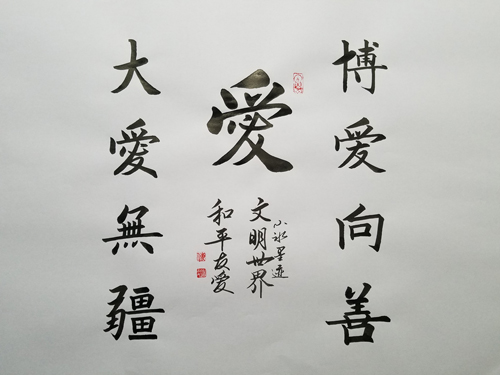 博爱向善
愛
文明世界
和平友爱
小冰墨迹
大愛無疆